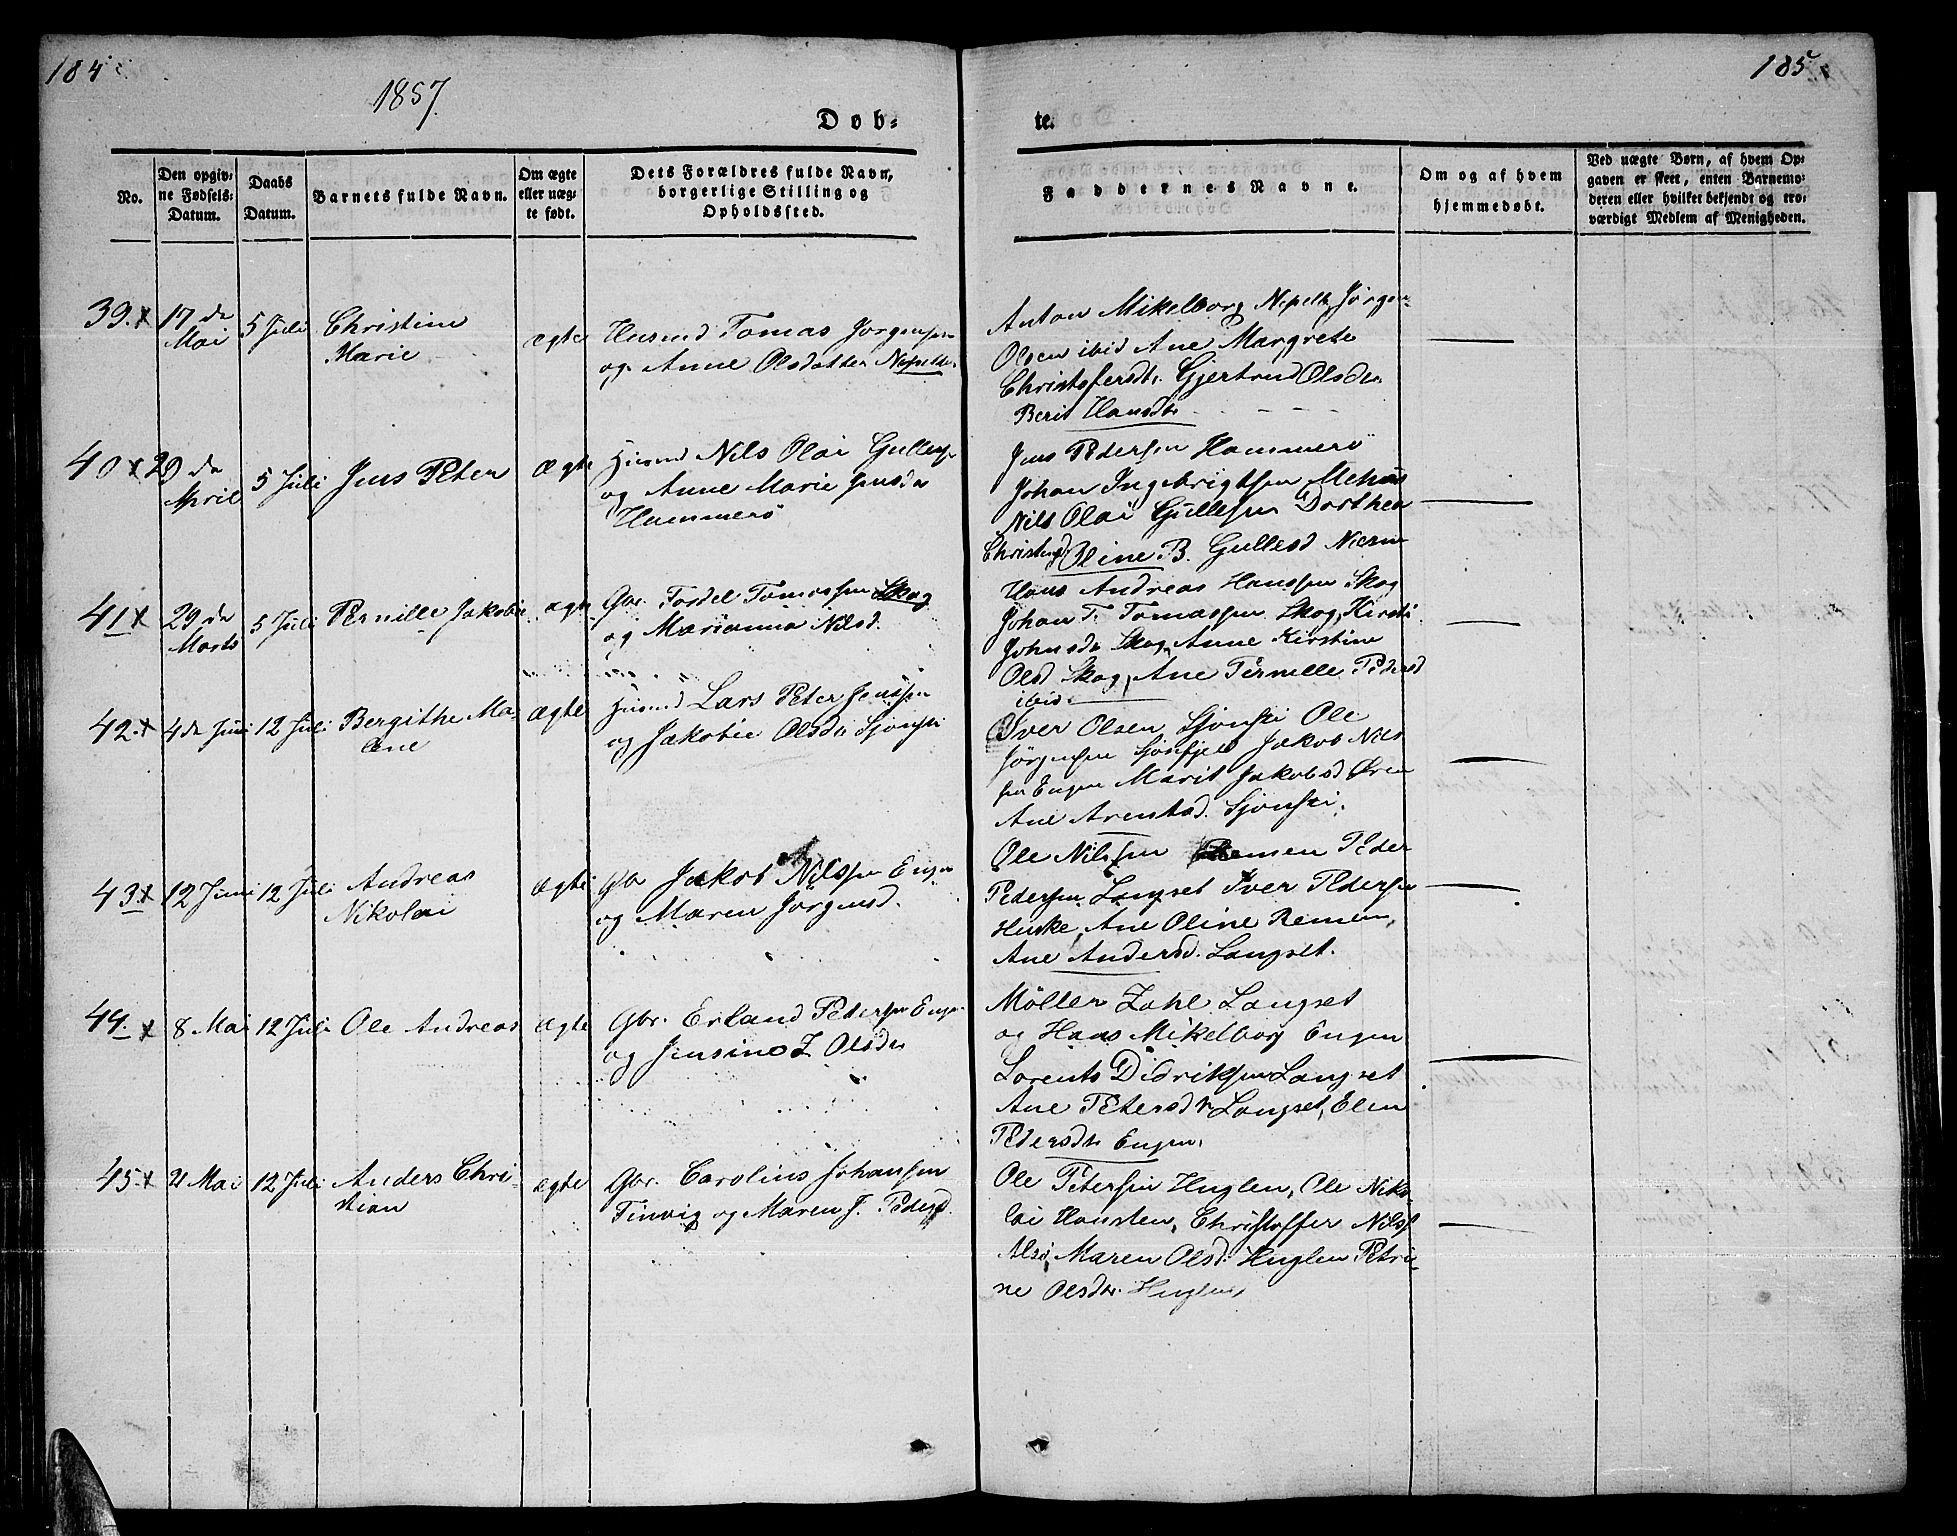 184
185
1857.
Døb-
te.
No.
Den opgiv-
ne Fødsels-
Datum.
Daabs
Datum.
Barnets fulde Navn.
Om ægte
eller uæg-
te født.
Dets Forældres fulde Navn,
borgerlige Stilling og
Opholdssted.
Faddernes Navne.
Om og af hvem
hjemmedøbt.
Ved uægte Børn, af hvem Op-
gaven er skeet, enten Barnemo-
deren eller hvilket bekjendt og tro-
værdigt Medlem af Menigheden.
39. x 17 de
Mai
5 Juli
Christine
Marie
ægte
Husmd Tomas Jørgensen
og Anne Olsdatter
Anton Mikelborg Jørgen
Olsen ibid Ane Margrete
Christofersdt. Gjertrud Olsdr.
Berit Hansdtr
40 x 29 de
April
5 Juli
Jens Peter
Ægte
Husmd Nils Olai Gullesen
og Anne Marie Jensdr
Hammerö
Jens Pedersen Hammerö
Johan Ingebrigtsen
Nils Olai Gullesen Dorthea
Oline B. Gullesd
41 x 29 de
Marts
5 Juli
Pernille Jakobie
ægte
Gbr. Tomassen Skog
og Marianna Nilsd.
Hans Andreas Hanssen Skog
Johan T. Tomassen Skog, Kirsti
Johnsdr Skog, Anne Kirstine
Olsd Skog, Ane Pernille Pedersd
ibid.
42. x 4 de Juni
12 Juli
Bergithe Ma-
lene
Ægte
Husmd Lars Peter Jenssen
og Jakobie Olsdr
Iver Olsen Ole
Jørgensen Sjonfjel Jakob Nils
sen Engen Marit Jakobsd Øren
Ane Arentsd.
43. x 12 Juni
12 Juli
Andreas
Nikolai
Ægte
Gbr Jakob Nilssen Engen
og Maren Jørgensd.
Ole Nilssen Remen Peder
Pedersen Langset Iver Pedersen
Huske, Ane Oline Remen,
Ane Andersd. Langset.
44. x 8 Mai
12 Juli
Ole Andreas
Ægte
Gbr. Erland Pedersen Engen
og Jensine Z Olsdr
Möller Zahl Langset
og Hans Mikelborg Engen
Lorents Didriksen Langset
Ane Petersdr Langset, Elen
Pedersdtr Engen.
45. x
Mai
12 Juli
Anders Chri-
stian
ægte
Gbr. Carolius Johansen
Finvig og Maren J. Pedersd.
Ole Petersen Huglen, Ole Niko-
lai Hansten, Christoffer Nilss
Alsö, Maren Olsd. Huglen Petri-
ne Olsdtr. Huglen